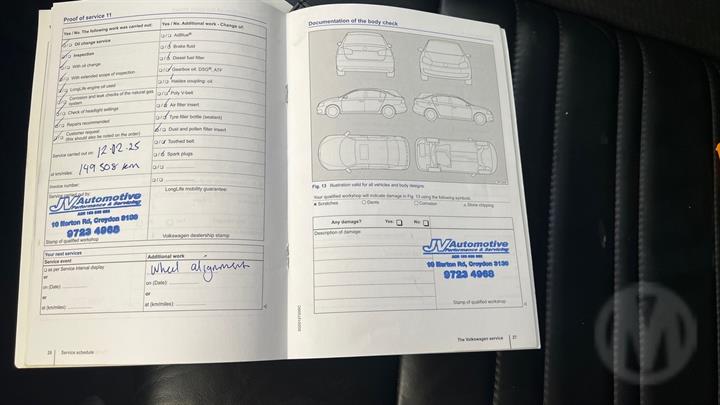 Proof of service 11
Yes / No: The following work was carried out:
Oil change service
Inspection
With oil change
With extended scope of inspection
LongLife engine oil used
Corrosion and leak checks of the natural gas
system
Check of headlight settings
Repairs recommended
Customer request
(this should also be noted on the order)
Service carried out on:
at km/miles: 149 508 km
Invoice number:
Service carried out by:
JV Automotive
Performance & Servicing
10 Norton Rd, Croydon 3136
9723 4968
Stamp of qualified workshop
Yes / No: Additional work - Change of:
AdBlue®
Brake fluid
Diesel fuel filter
Gearbox oil: DSG®, ATF
Haldex coupling: oil
Poly V-belt
Air filter insert
Tyre filler bottle (sealant)
Dust and pollen filter insert
Toothed belt
Spark plugs
LongLife mobility guarantee:
Volkswagen dealership stamp
Your next services
Service event
as per Service Interval display
or
on (Date):
or
at (km/miles):
Additional work
wheel alignment
on (Date):
or
at (km/miles):
26 Service schedule
Documentation of the body check
Fig. 13 Illustration valid for all vehicles and body designs
Your qualified workshop will indicate damage in Fig. 13 using the following symbols:
Scratches Dents Corrosion Stone chipping
Any damage? Yes: No:
Description of damage:
JV Automotive
Performance & Servicing
10 Norton Rd, Croydon 3136
9723 4968
Stamp of qualified workshop
The Volkswagen service 27
M